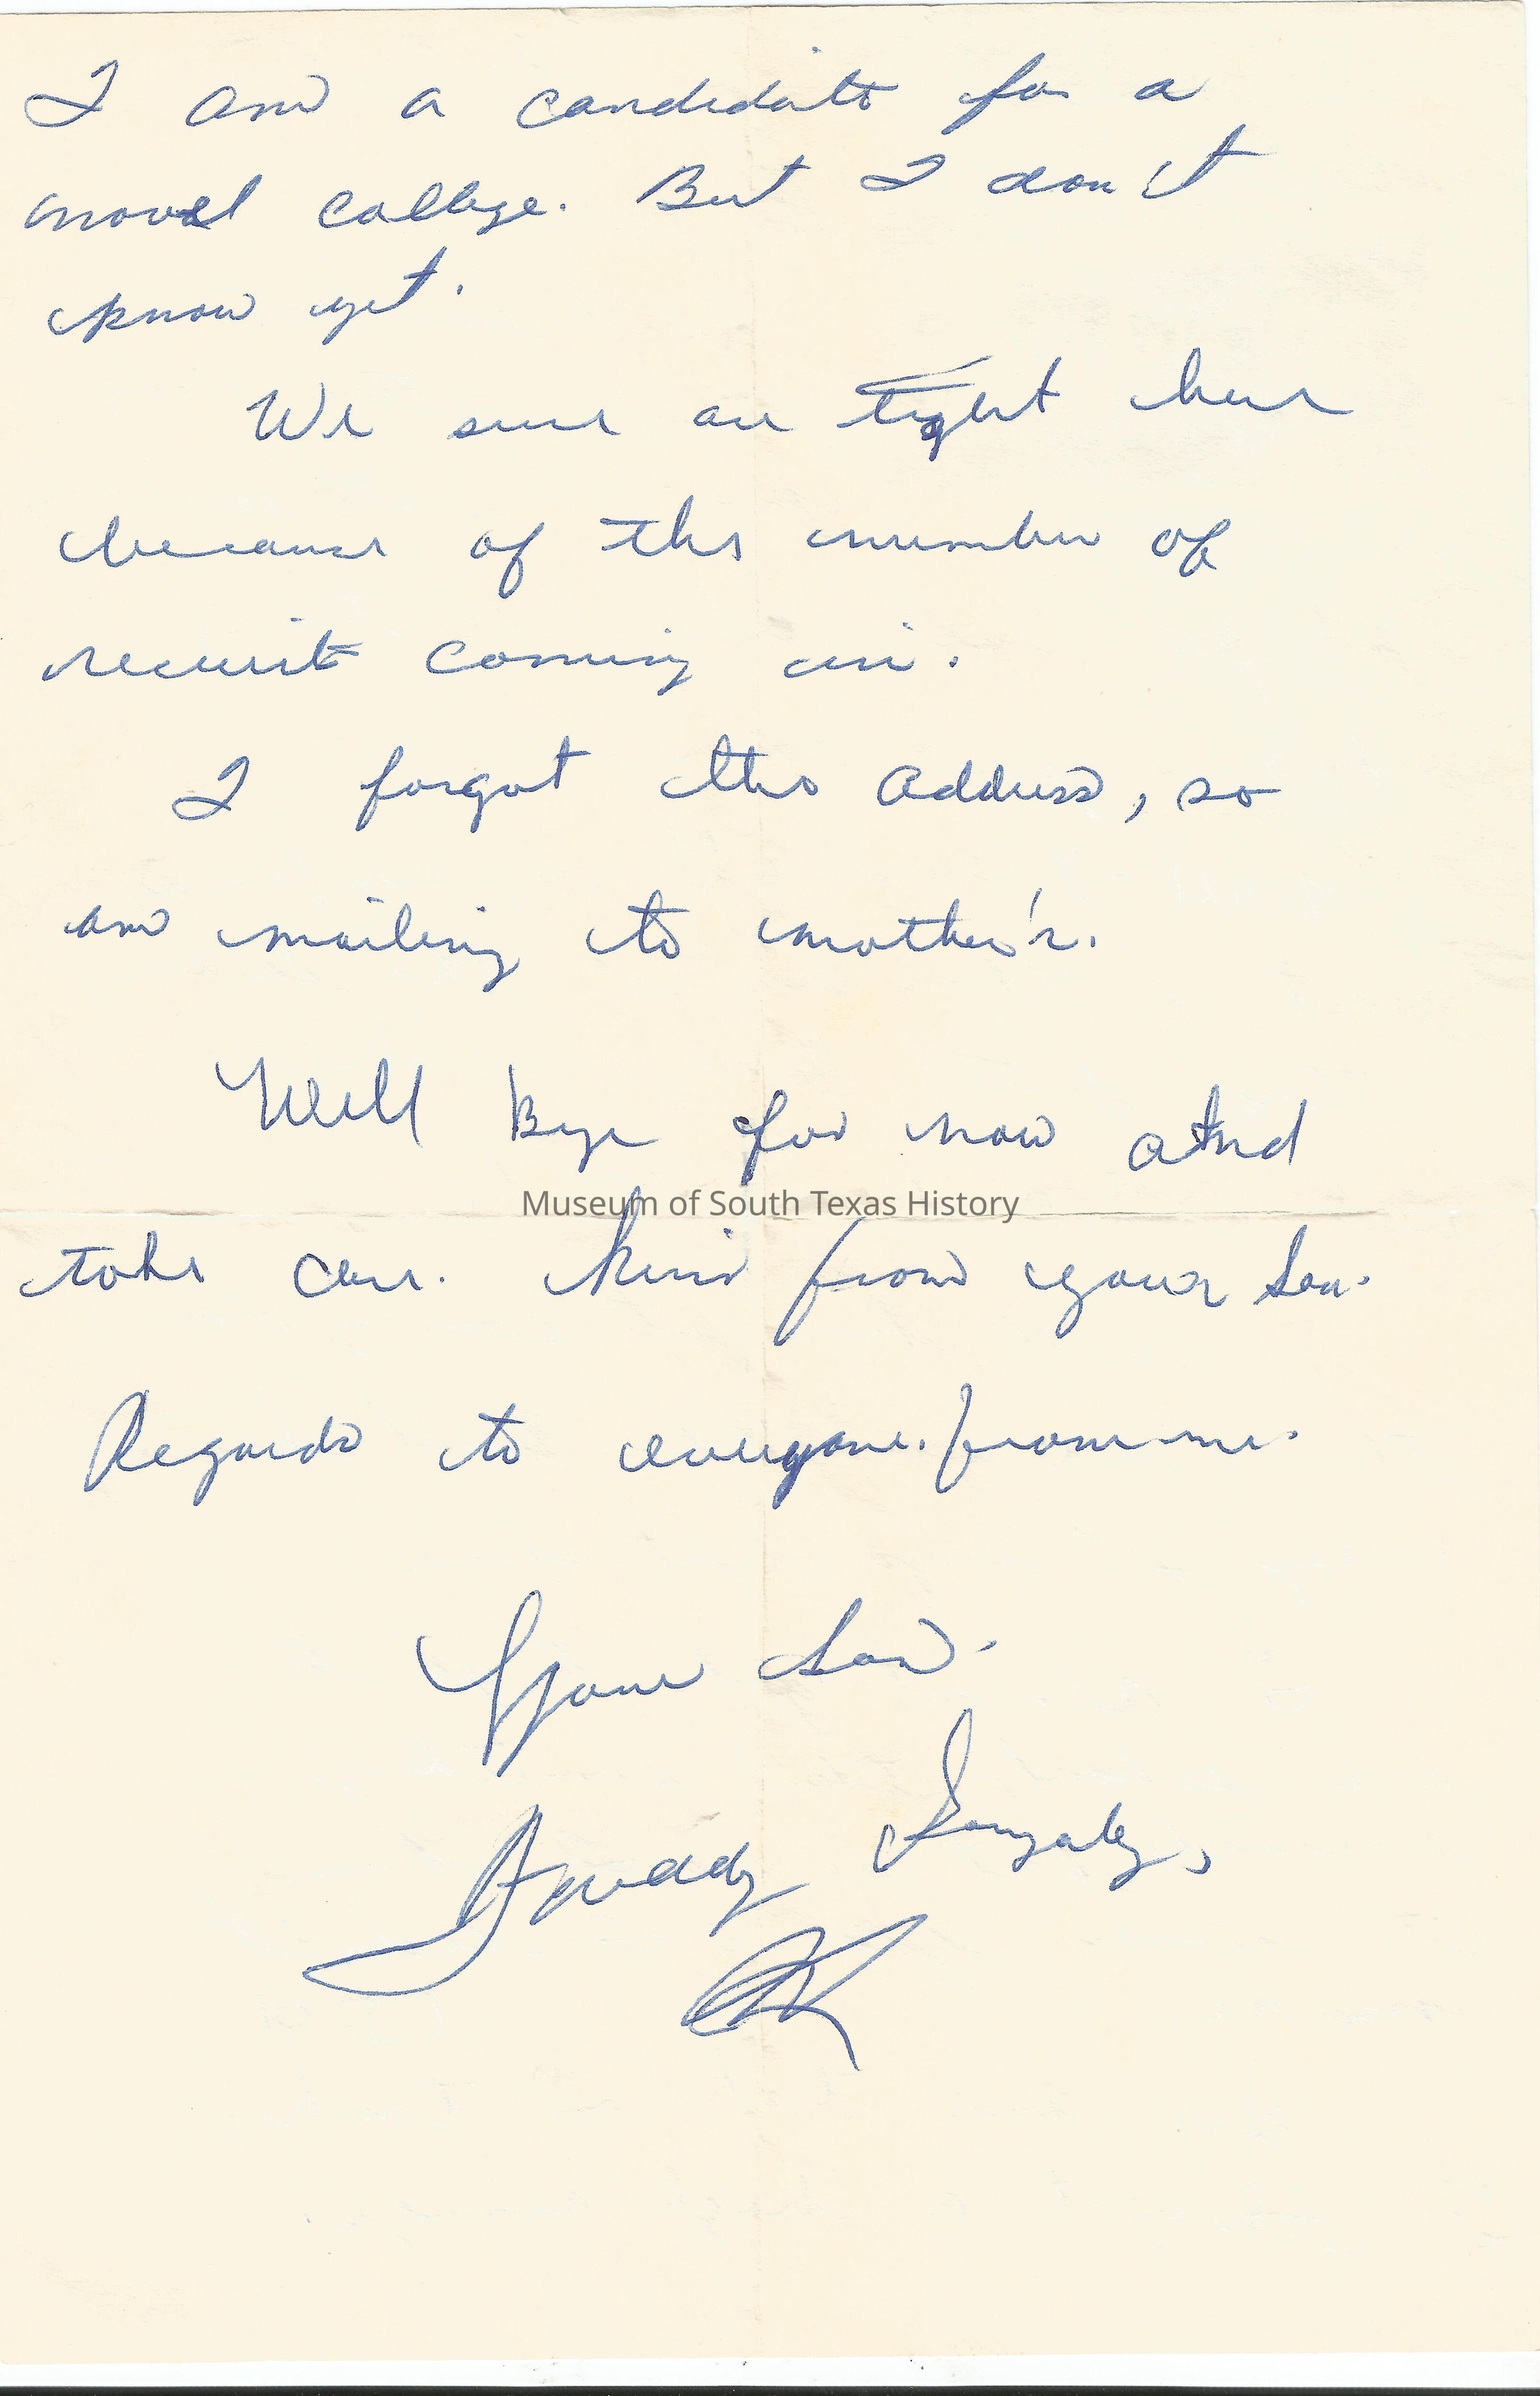 I am a candidate for a
naval college. But I don't
know yet.
We sure are tight here
because of the number of
recruit coming in.
I forgot the address, so
am mailing to mother's.
Well Bye for now and
Museum of South Texas History
take care. from your son.
Regards to everyone. from me.
Your son.
Freddy Gonzalez,